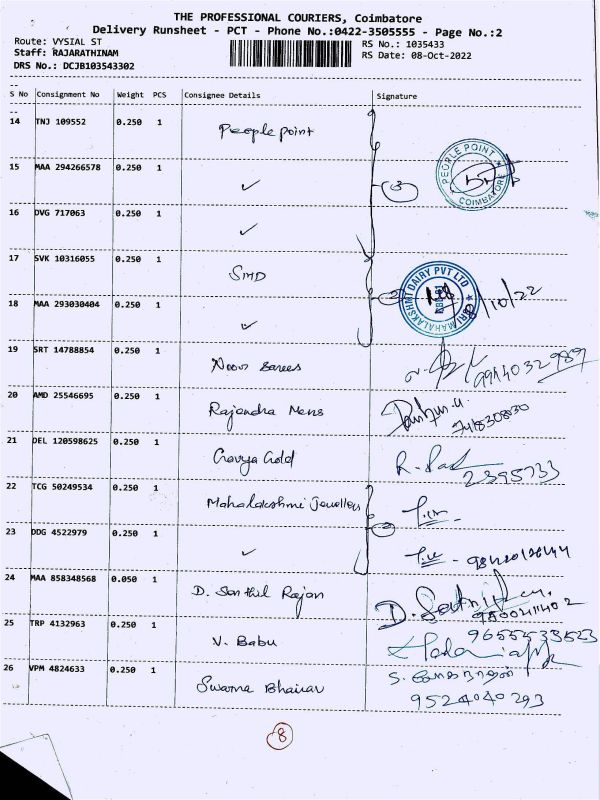 THE PROFESSIONAL COURIERS, Coimbatore
Delivery Runsheet - PCT - Phone No.:0422-3505555 - Page No.:2
Route: VYSIAL ST
Staff: RAJARATHINAM
DRS No.: DCJB103543302
RS No.: 1035433
RS Date: 08-Oct-2022
S No Consignment No Weight PCS Consignee Details Signature
14 TNJ 109552 0.250 1 People point
15 MAA 294266578 0.250 1 ✓ 3 PEOPLE POINT COIMBATORE
16 DVG 717063 0.250 1 ✓
17 SVK 10316055 0.250 1 SMD
2 SRI MAHALAKSHMI DAIRY PVT LTD /10/22
18 MAA 293030404 0.250 1 ✓
19 SRT 14788854 0.250 1 Noor Sarees 9944032989
20 AMD 25546695 0.250 1 Rajendra Mens
21 DEL 120598625 0.250 1 Gold 2395733
22 TCG 50249534 0.250 1 Mahalakshmi Jewellers
2
23 DDG 4522979 0.250 1 ✓
24 MAA 858348568 0.050 1 D. Senthil Rajan
25 TRP 4132963 0.250 1 V. Babu 9655533523
26 VPM 4824633 0.250 1 Swarna Bhairav S.
9524040293
8